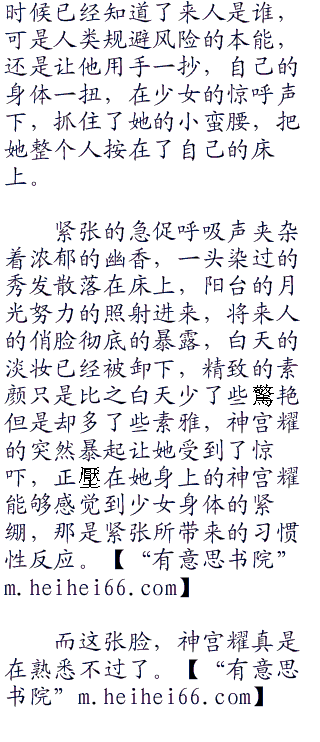 时候已经知道了来人是谁，
可是人类规避风险的本能，
还是让他用手一抄，自己的
身体一扭，在少女的惊呼声
下，抓住了她的小蛮腰，把
她整个人按在了自己的床
上。
紧张的急促呼吸声夹杂
着浓郁的幽香，一头染过的
秀发散落在床上，阳台的月
光努力的照射进来，将来人
的俏脸彻底的暴露，白天的
淡妆已经被卸下，精致的素
颜只是比之白天少了些驚艳
但是却多了些素雅，神宫耀
的突然暴起让她受到了惊
吓，正壓在她身上的神宫耀
能够感觉到少女身体的紧
绷，那是紧张所带来的习惯
性反应。【“有意思书院”
m.heihei66.com】
而这张脸，神宫耀真是
在熟悉不过了。【“有意思
书院”m.heihei66.com】